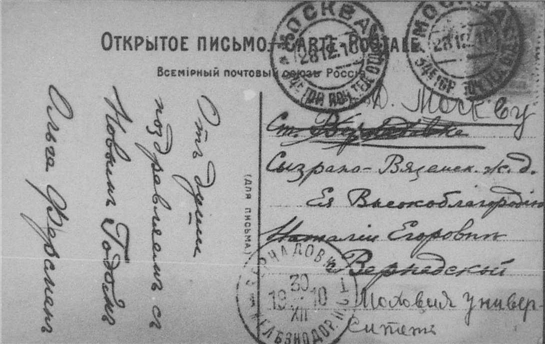 ОТКРЫТОЕ ПИСЬМО.—CARTE POSTALE
Всемірный почтовый союзъ. Россія
(для письма)
Отъ души
поздравляемъ съ
Новымъ Годомъ
Ольга Ферсманъ
МОСКВА
28.12.10
МОСКВА
28.12.10
Москву
Ст. Вернадовка
Сызрано-Вяземск. ж. д.
Ея Высокоблагородію
Наталіи Егоровнѣ
Вернадской
Моховая Универ-
ситетъ
ВЕРНАДОВКА
30
XII
19 10